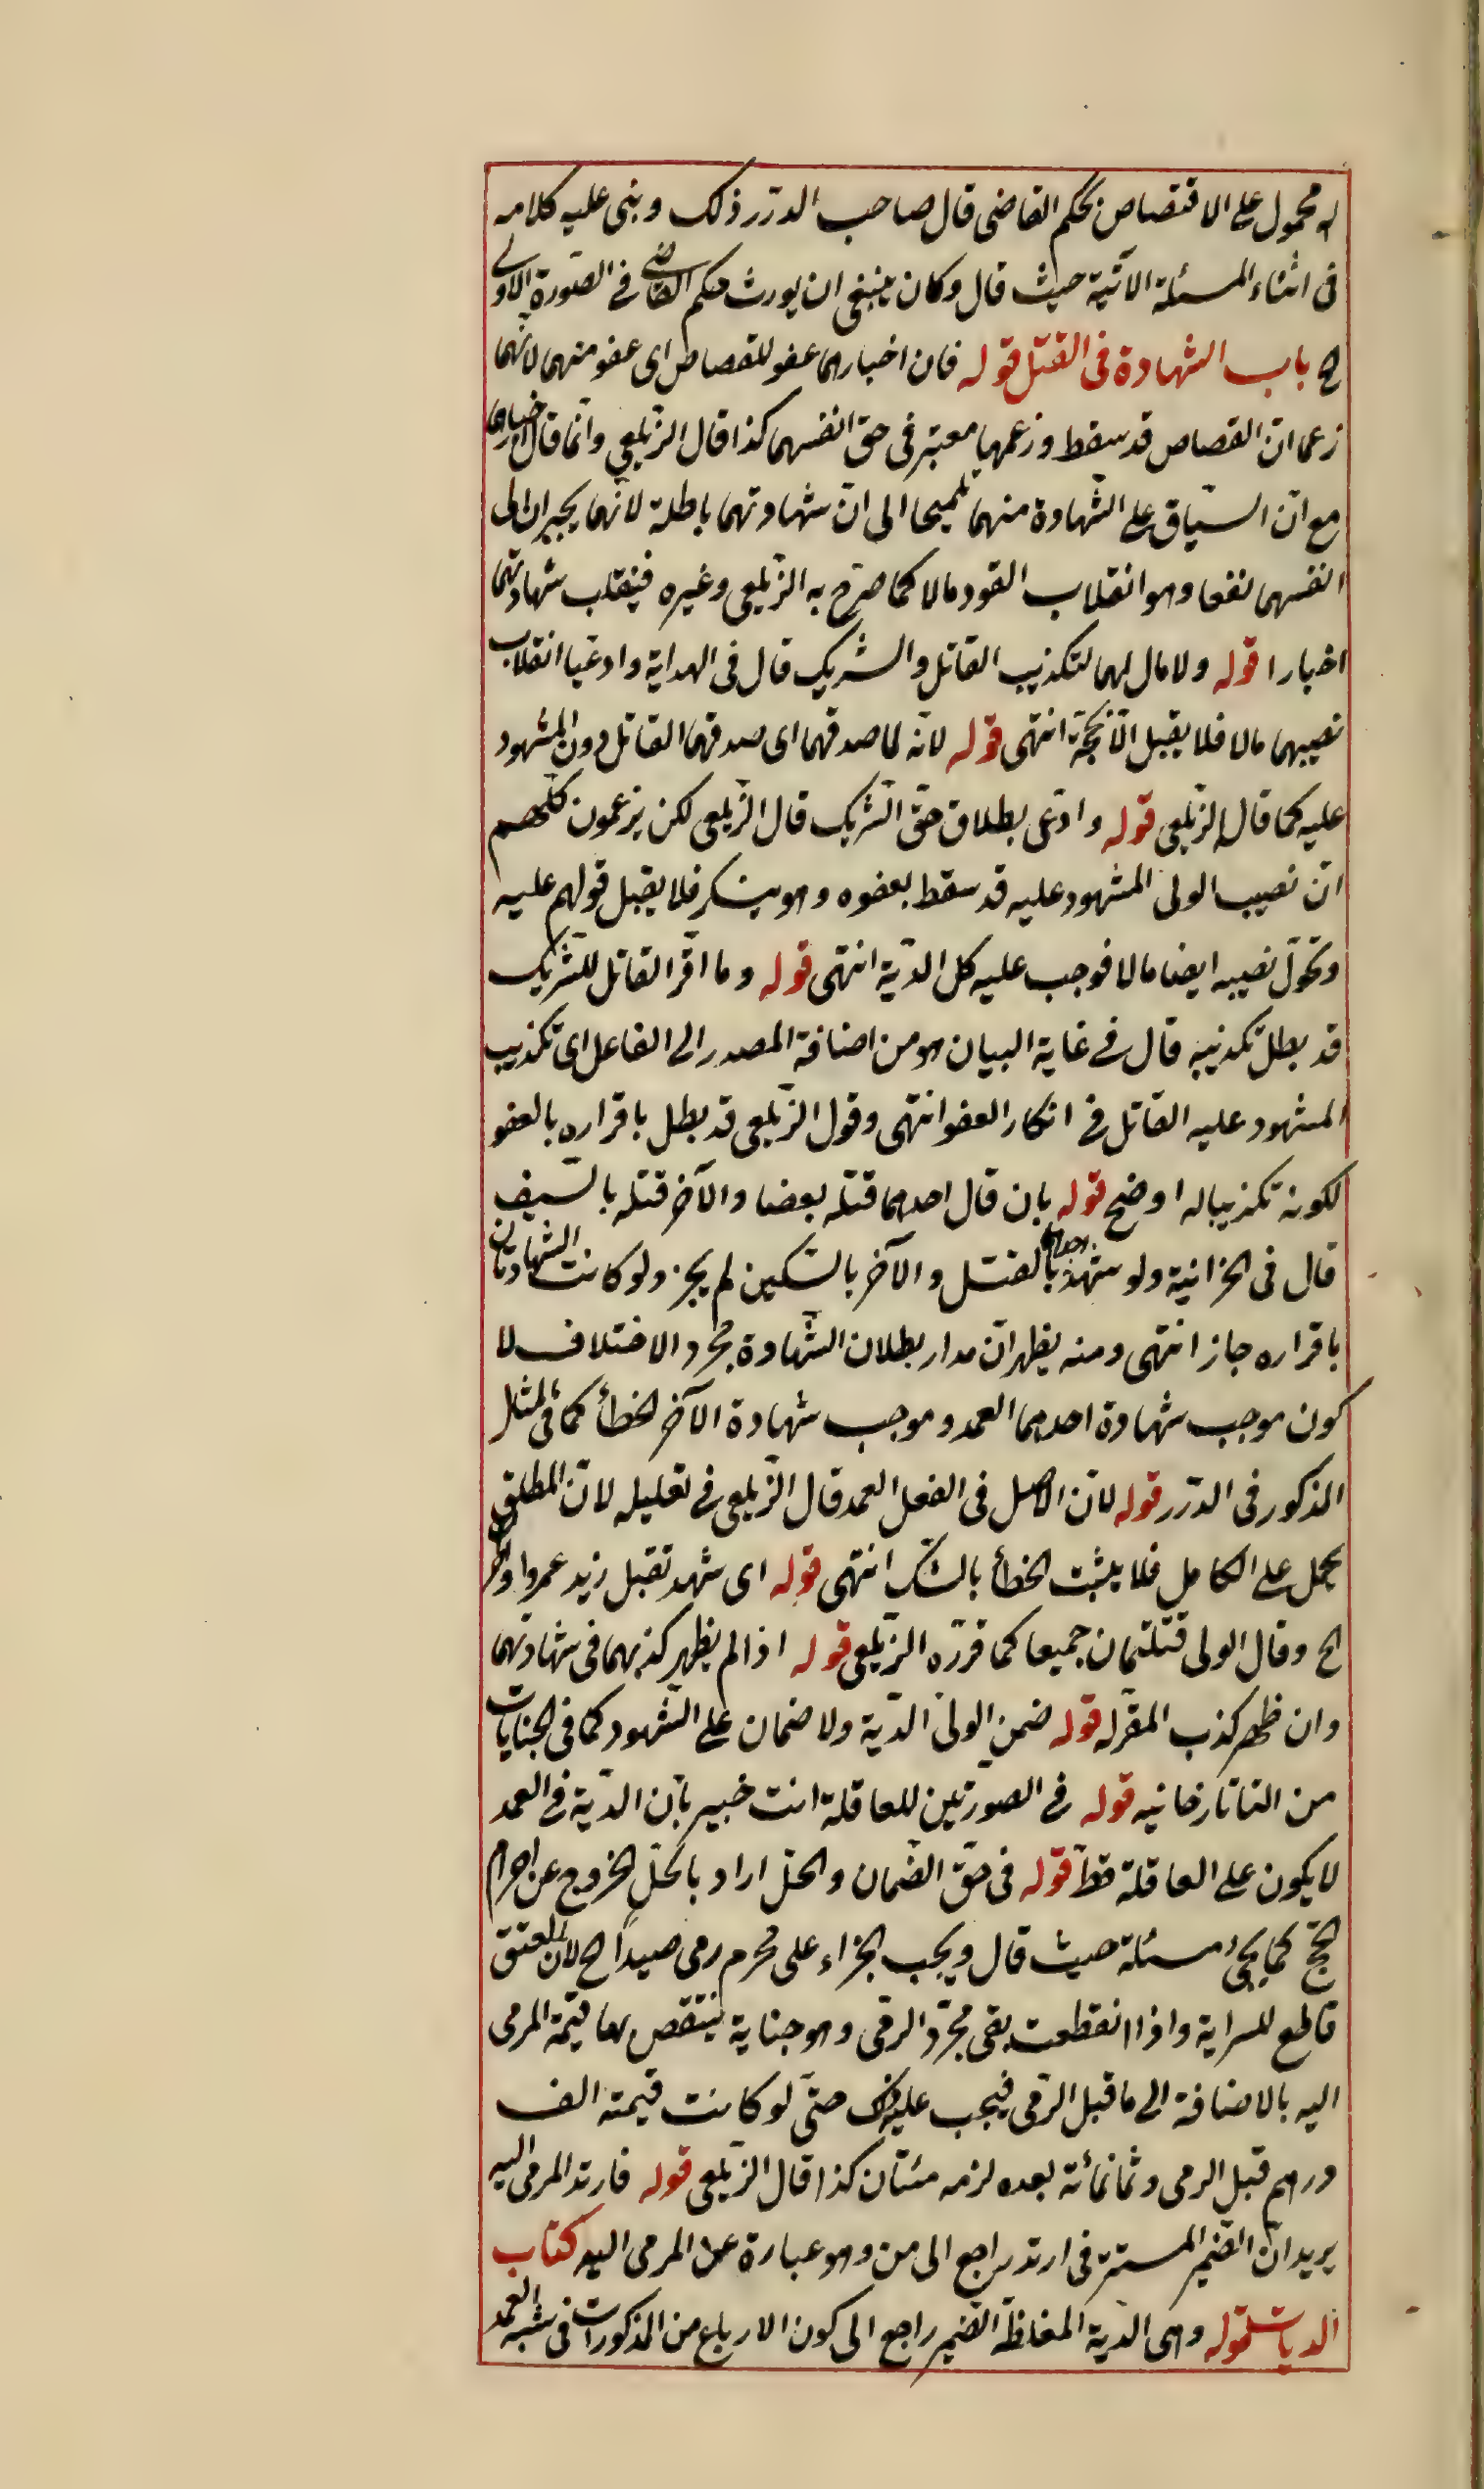 له محمول على الاقتصاص بحكم القاضى قال صاحب الدرر ذلك وبنى عليه كلامه
فى اثناء المسئلة الآتية حيث قال وكان ينبغى ان يورث حكم القاضى فى الصورة الاولى
الخ باب الشهادة فى القتل قوله فان اخبارهما عفو للقصاص اى عفو منهما لانهما
زعما انّ القصاص قد سقط وزعمهما معتبر فى حق انفسهما كذا قال الزيلعى وانّما قال اخبارهما
مع انّ السياق على الشهادة منهما تلميحا الى انّ شهادتهما باطلة لانهما يجيران الى
انفسهما نفعا وهو انقلاب القود مالا كما صرّح به الزيلعى وغيره فينقلب شهادتهما
اخبارا قوله ولا مال لهما لتكذيب القاتل والشريك قال فى الهداية وادعيا انقلاب
نصيبهما مالا فلا يقبل الّا بحجّة انتهى قوله لانّه لما صدقهما اى صدقهما القاتل دون المشهود
عليه كما قال الزيلعى قوله وادّعى بطلاق حقّ الشريك قال الزيلعى لكن يزعمون كلّهم
انّ نصيب الولى المشهود عليه قد سقط بعفوه وهو ينكر فلا يقبل قولهم عليه
وتحوّل نصيبه ايضا مالا فوجب عليه كل الديّة انتهى قوله وما اقرّ القاتل للشريك
قد بطل تكذيبه قال فى غاية البيان هو من اضافة المصدر الى الفاعل اى تكذيب
المشهود عليه القاتل فى انكار العفو انتهى وقول الزيلعى قد بطل باقراره بالعفو
لكونه تكذيبا له اوضح قوله بان قال احدهما قتله بعصا والآخر قتله بالسّيف
قال فى الخزانية ولو شهد احدهما بالقتل والآخر بالسّكين لم يجز ولو كانت الشهادتان
باقراره جاز انتهى ومنه يظهر انّ مدار بطلان الشّهادة مجرّد الاختلاف لا
كون موجب شهادة احدهما العمد وموجب شهادة الآخر الخطأ كما فى المثل
المذكور فى الدرر قوله لانّ الاصل فى الفعل العمد قال الزّيلعى فى تعليله لانّ المطلق
يحمل على الكامل فلا يثبت الخطأ بالشّك انتهى قوله اى شهد بقتل زيد عمروا
الخ وقال الولى قتلتمان جميعا كما قرّره الزيلعى قوله اذا لم يظهر كذبهما فى شهادتهما
وان ظهر كذب المقرّ له قوله ضمن الولى الديّة ولا ضمان على الشّهود كما فى الجنايات
من التاتارخانيه قوله فى الصورتين للعاقلة انت خبير بانّ الديّة فى العمد
لا يكون على العاقلة قطّ قوله فى حقّ الضّمان والحلّ اراد بالحلّ الخروج عن احرام
الحجّ كما يجئ مسئلة حيث قال ويجب الجزاء على محرم رمى صيداً الخ لانّ العتق
قاطع للسراية واذا انقطعت بقى مجرّد الرقى وهو جناية ينتقص بها قيمة المرمى
اليه بالاضافة الى ما قبل الرّمى فيجب عليه ذلك حتّى لو كانت قيمته الف
درهم قبل الرمى وثمانمائة بعده لزمه مئتان كذا قال الزيلعى قوله فارتد المرمى اليه
يريد انّ الضمير المستتر فى ارتد راجع الى من وهو عبارة عن المرمى اليه كتاب
الديات قوله وهى الدية المغلظة الضمير راجع الى كون الارباع من المذكورات فى شبه العمد